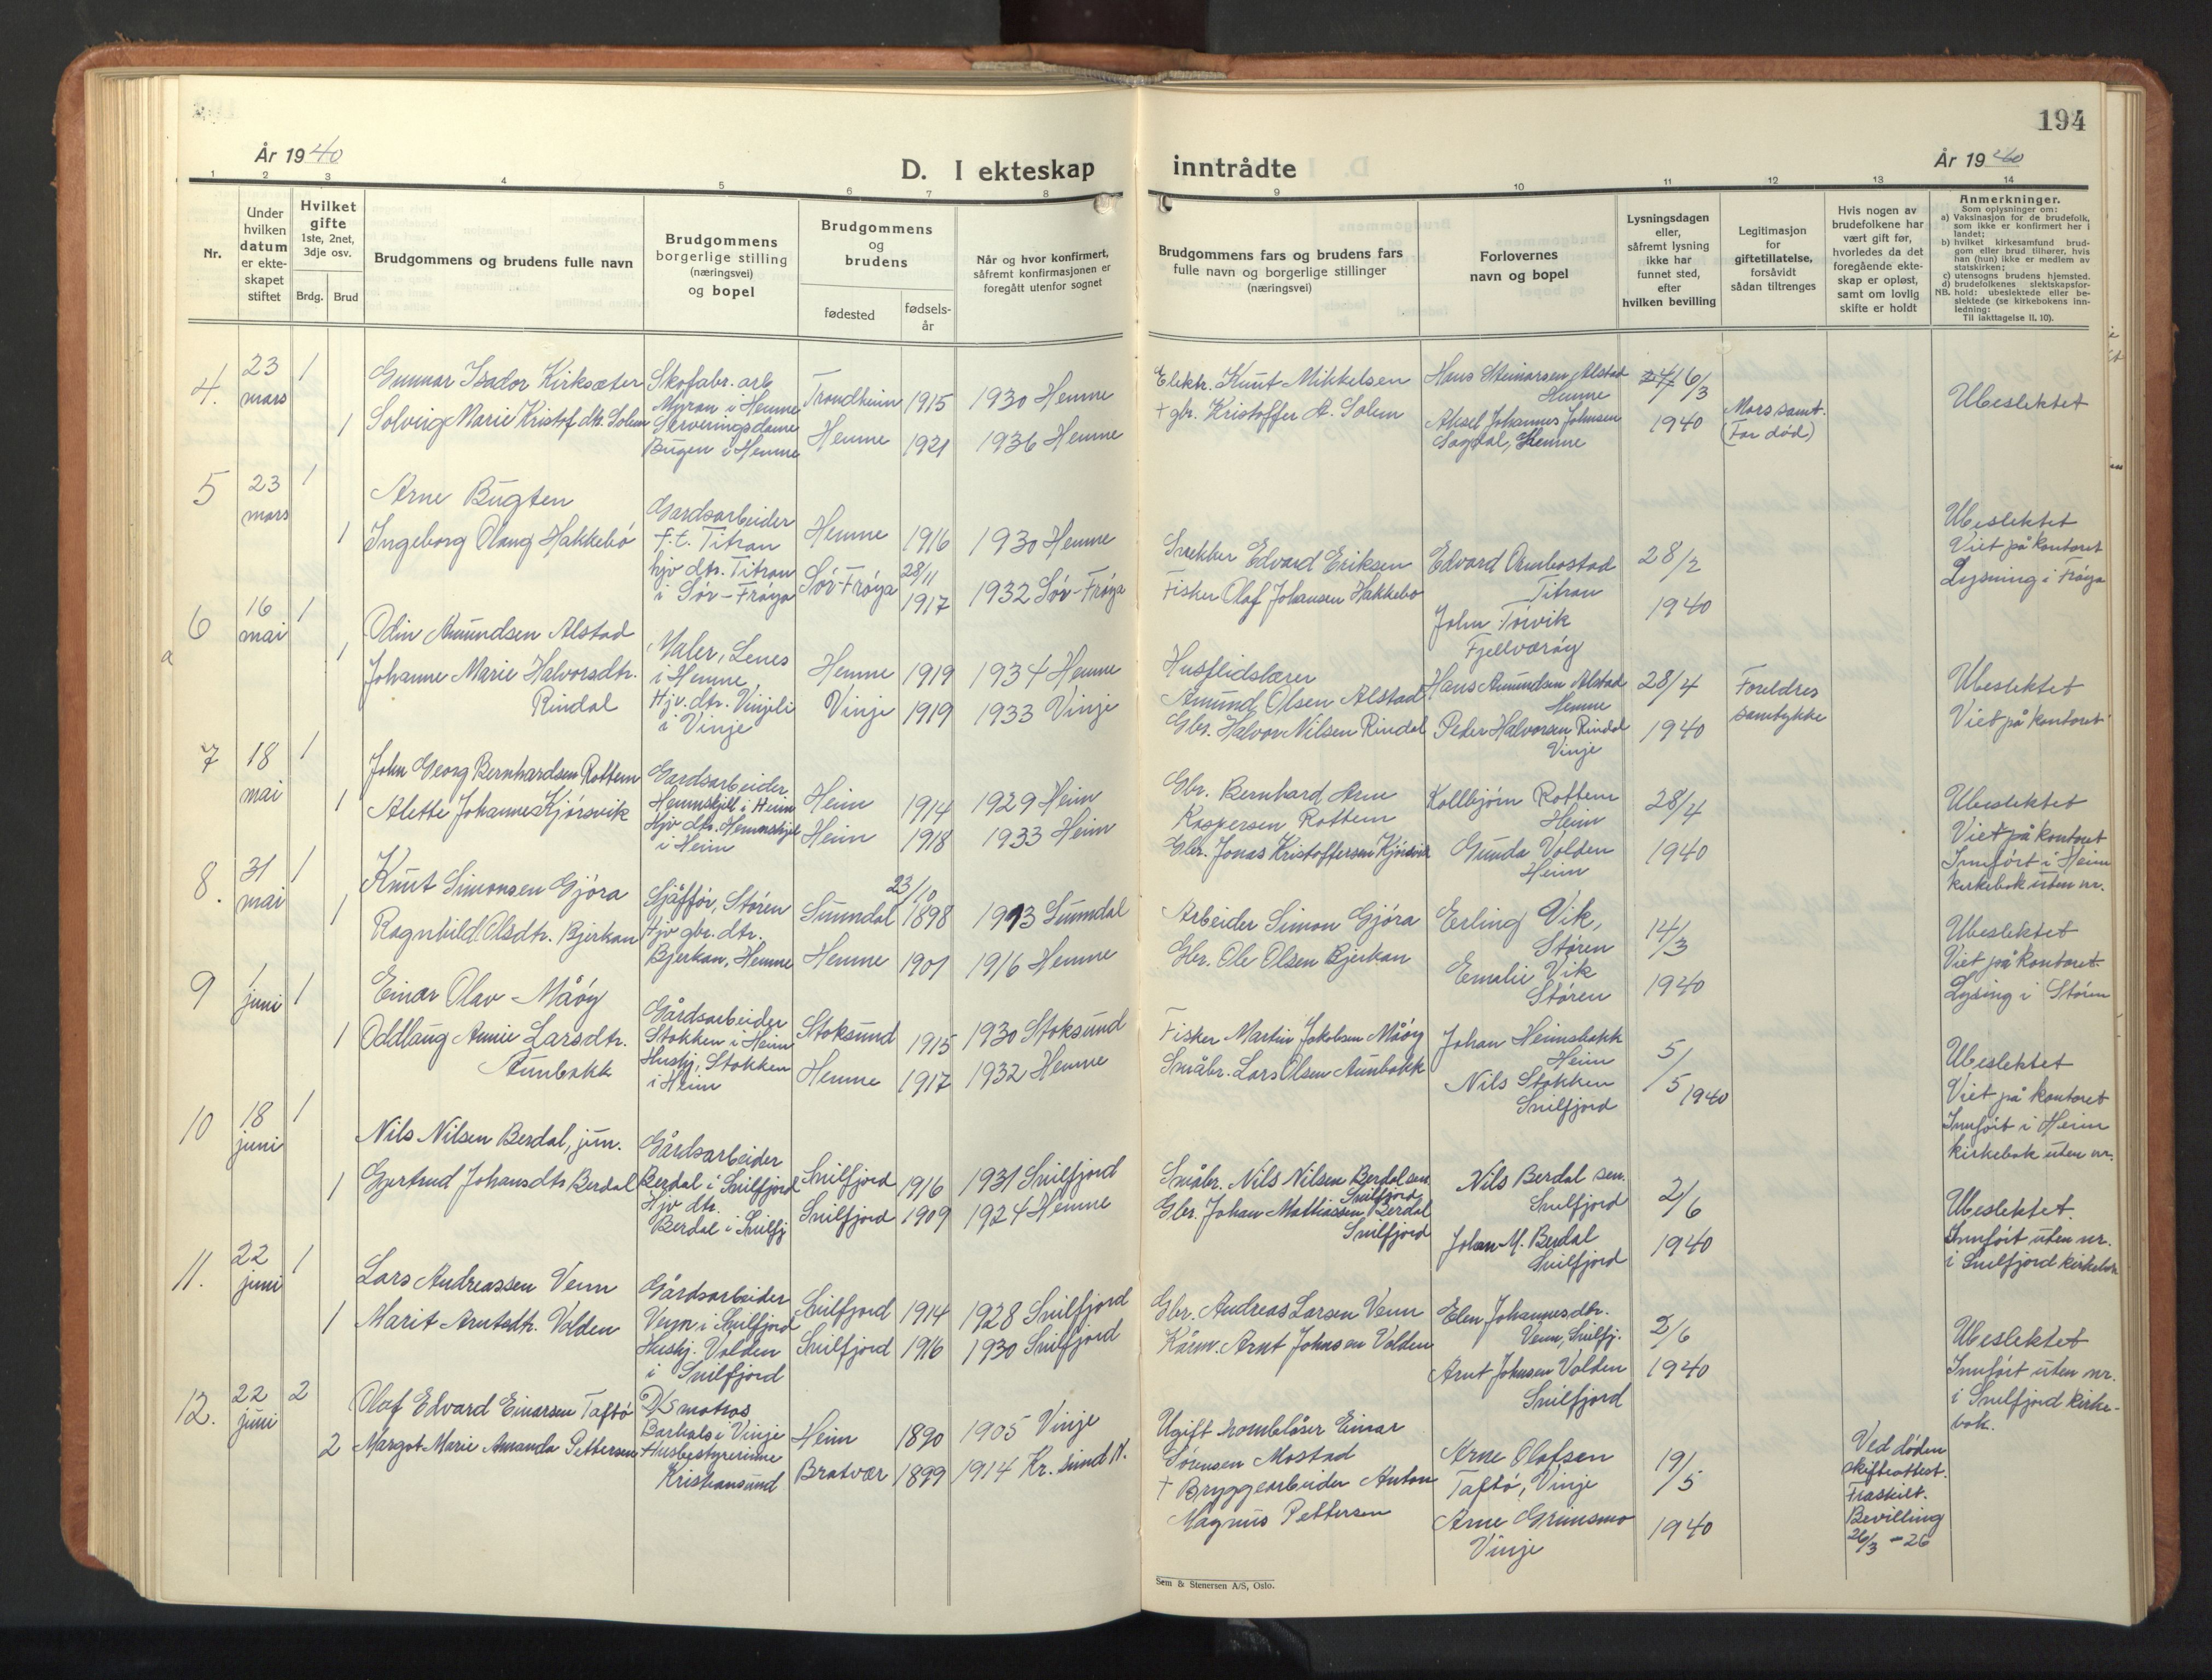 194
År 1940
D. I ekteskap
inntrådte
År 1940
1 2 3 4 5 6 7 8 9 10 11 12 13 14
Nr.
Under
hvilken
datum
er ekte-
skapet
stiftet
Hvilket
gifte
1ste, 2net,
3dje osv.
Brdg. Brud
Brudgommens og brudens fulle navn
Brudgommens
borgerlige stilling
(næringsvei)
og bopel
Brudgommens
og
brudens
fødested
fødsels-
år
Når og hvor konfirmert,
såfremt konfirmasjonen er
foregått utenfor sognet
Brudgommens fars og brudens fars
fulle navn og borgerlige stillinger
(næringsvei)
Forlovernes
navn og bopel
Lysningsdagen
eller,
såfremt lysning
ikke har
funnet sted,
efter
hvilken bevilling
Legitimasjon
for
giftetillatelse,
forsåvidt
sådan tiltrenges
Hvis nogen av
brudefolkene har
vært gift før,
hvorledes da det
foregående ekte-
skap er opløst,
samt om lovlig
skifte er holdt
Anmerkninger.
Som oplysninger om:
a) Vaksinasjon for de brudefolk,
som ikke er konfirmert her i
landet;
b) hvilket kirkesamfund brud-
gom eller brud tilhører, hvis
han (hun) ikke er medlem av
statskirken;
c) utensogns brudens hjemsted.
d) brudefolkenes slektskapsfor-
NB. hold: ubeslektede eller be-
slektede (se kirkebokens inn-
ledning:
Til iakttagelse II, 10).
4.
23
mars
1
1
Gunnar Isador Kirksæter
Solveig Marie Kristofdtr. Solem
Skofabr. arb
Myran i Hemne
Serveringsdame
Bugen i Hemne
Trondheim 1915 1930 Hemne
Hemne 1921 1936 Hemne
Elektr. Knut Mikkelsen
+ gbr. Kristoffer A. Solem
Hans Steinarsen Alstad
Hemne
Aksel Johannes Johnsen
Sagdal, Hemne
6/3
1940
Mors samt.
(Far død)
Ubeslektet
5
23
mars
1
1
Arne Bugten
Ingeborg Olaug Hakkebo
Gardsarbeider
f.t. Titran
hjv dtr. Titran
i Sør-Frøya
Hemne 1916 1930 Hemne
Sør-Frøya 28/11 1917 1932 Sør-Frøya
Snekker Edvard Eriksen
Fisker Olaf Johansen Hakkebo
Edvard Ombostad
Titran
John Torvik
Fjellværøy
28/2
1940
Ubeslektet
Viet på kontoret
Lysning i Frøya
6
a
16
mai
1
1
Odin Amundsen Alstad
Johanne Marie Halvorsdtr.
Rindal
Maler, Lenes
i Hemne
Hjv. dtr. Vinjeli
i Vinje
Hemne 1919 1934 Hemne
Vinje 1919 1933 Vinje
Husflidslærer
Amund Olsen Alstad
Gbr. Halvor Nilsen Rindal
Hans Amundsen Alstad
Hemne
Peder Halvorsen Rindal
Vinje
28/4
1940
Foreldres
samtykke
Ubeslektet
Viet på kontoret
7
18
mai
1
1
John Georg Bernhardsen Rottem
Alette Johanne Kjørsvik
Gardsarbeider
Hemnskjell i Heim
Hjv dtr. Hemnskjel
i Heim
Heim 1914 1929 Heim
Heim 1918 1933 Heim
Gbr. Bernhard Arn
Kaspersen Rottem
Gbr. Jonas Kristoffersen Kjørsvik
Kollbjørn Rottem
Heim
Gunda Volden
Heim
28/4
1940
Ubeslektet
Viet på kontoret
Innført i Heim
kirkebok uten nr.
8.
31
mai
1
1
Knut Simonsen Gjøra
Ragnhild Olsdtr. Bjerkan
Sjåffør, Støren
Hjv gbr. dtr.
Bjerkan, Hemne
Sunndal 23/10 1898 1913 Sunndal
Hemne 1901 1916 Hemne
Arbeider Simon Gjøra
Gbr. Ole Olsen Bjerkan
Erling Vik,
Støren
Emelie Vik
Støren
14/3
1940
Ubeslektet
Viet på kontoret
Lysing i Støren
9
1
juni
1
1
Einar Olav Måøy
Oddlaug Annie Larsdtr.
Aunbakk
Gårdsarbeider
Stokken i Heim
Hushj. Stokken
i Heim
Stoksund 1915 1930 Stoksund
Hemne 1917 1932 Hemne
Fisker Martin Jakobsen Måøy
Småbr. Lars Olsen Aunbakk
Johan Heimsbakk
Heim
Nils Stokken
Snilfjord
5/5 1940
Ubeslektet
Viet på kontoret
Innført i Heim
kirkebok uten nr.
10
18
juni
1
1
Nils Nilsen Berdal, jun.
Gjertrud Johansdtr Berdal
Gårdsarbeider
Berdal i Snilfjord
Hjv dtr.
Berdal i Snilfj
Snilfjord 1916 1931 Snilfjord
Snilfjord 1909 1924 Hemne
Småbr. Nils Nilsen Berdal sen
Snilfjord
Gbr. Johan Mathiassen Berdal
Snilfjord
Nils Berdal sen.
Snilfjord
Johan M. Berdal
Snilfjord
2/6
1940
Ubeslektet.
Innført uten nr.
i Snilfjord kirkebok
11.
22
juni
1
1
Lars Andreassen Venn
Marit Arntsdtr. Volden
Gårdsarbeider
Venn i Snilfjord
Hushj. Volden
i Snilfjord
Snilfjord 1914 1928 Snilfjord
Snilfjord 1916 1930 Snilfjord
Gbr. Andreas Larsen Venn
Kårm. Arnt Johnsen Volden
Elen Johannesdtr.
Venn, Snilfj.
Arnt Johnsen Volden
Snilfjord
2/6
1940
Ubeslektet
Innført uten nr.
i Snilfjord kirke-
bok.
12.
22
juni
2
2
Olaf Edvard Einarsen Taftø
Margot Marie Amanda Pettersen
D/S matros
Barhals i Vinje
Husbestyrerinne
Kristiansund
Heim 1890 1905 Vinje
Bratvær 1899 1914 Kr. sund N.
Ugift hornblåser Einar
Sørensen Mostad
+ Bryggearbeider Anton
Magnus Pettersen
Arne Olafsen
Taftø, Vinje
Arne Grimsmo
Vinje
19/5
1940
Ved døden
skifteattest.
Fraskilt.
Bevilling
26/3 - 26
Sem & Stenersen A/S, Oslo.